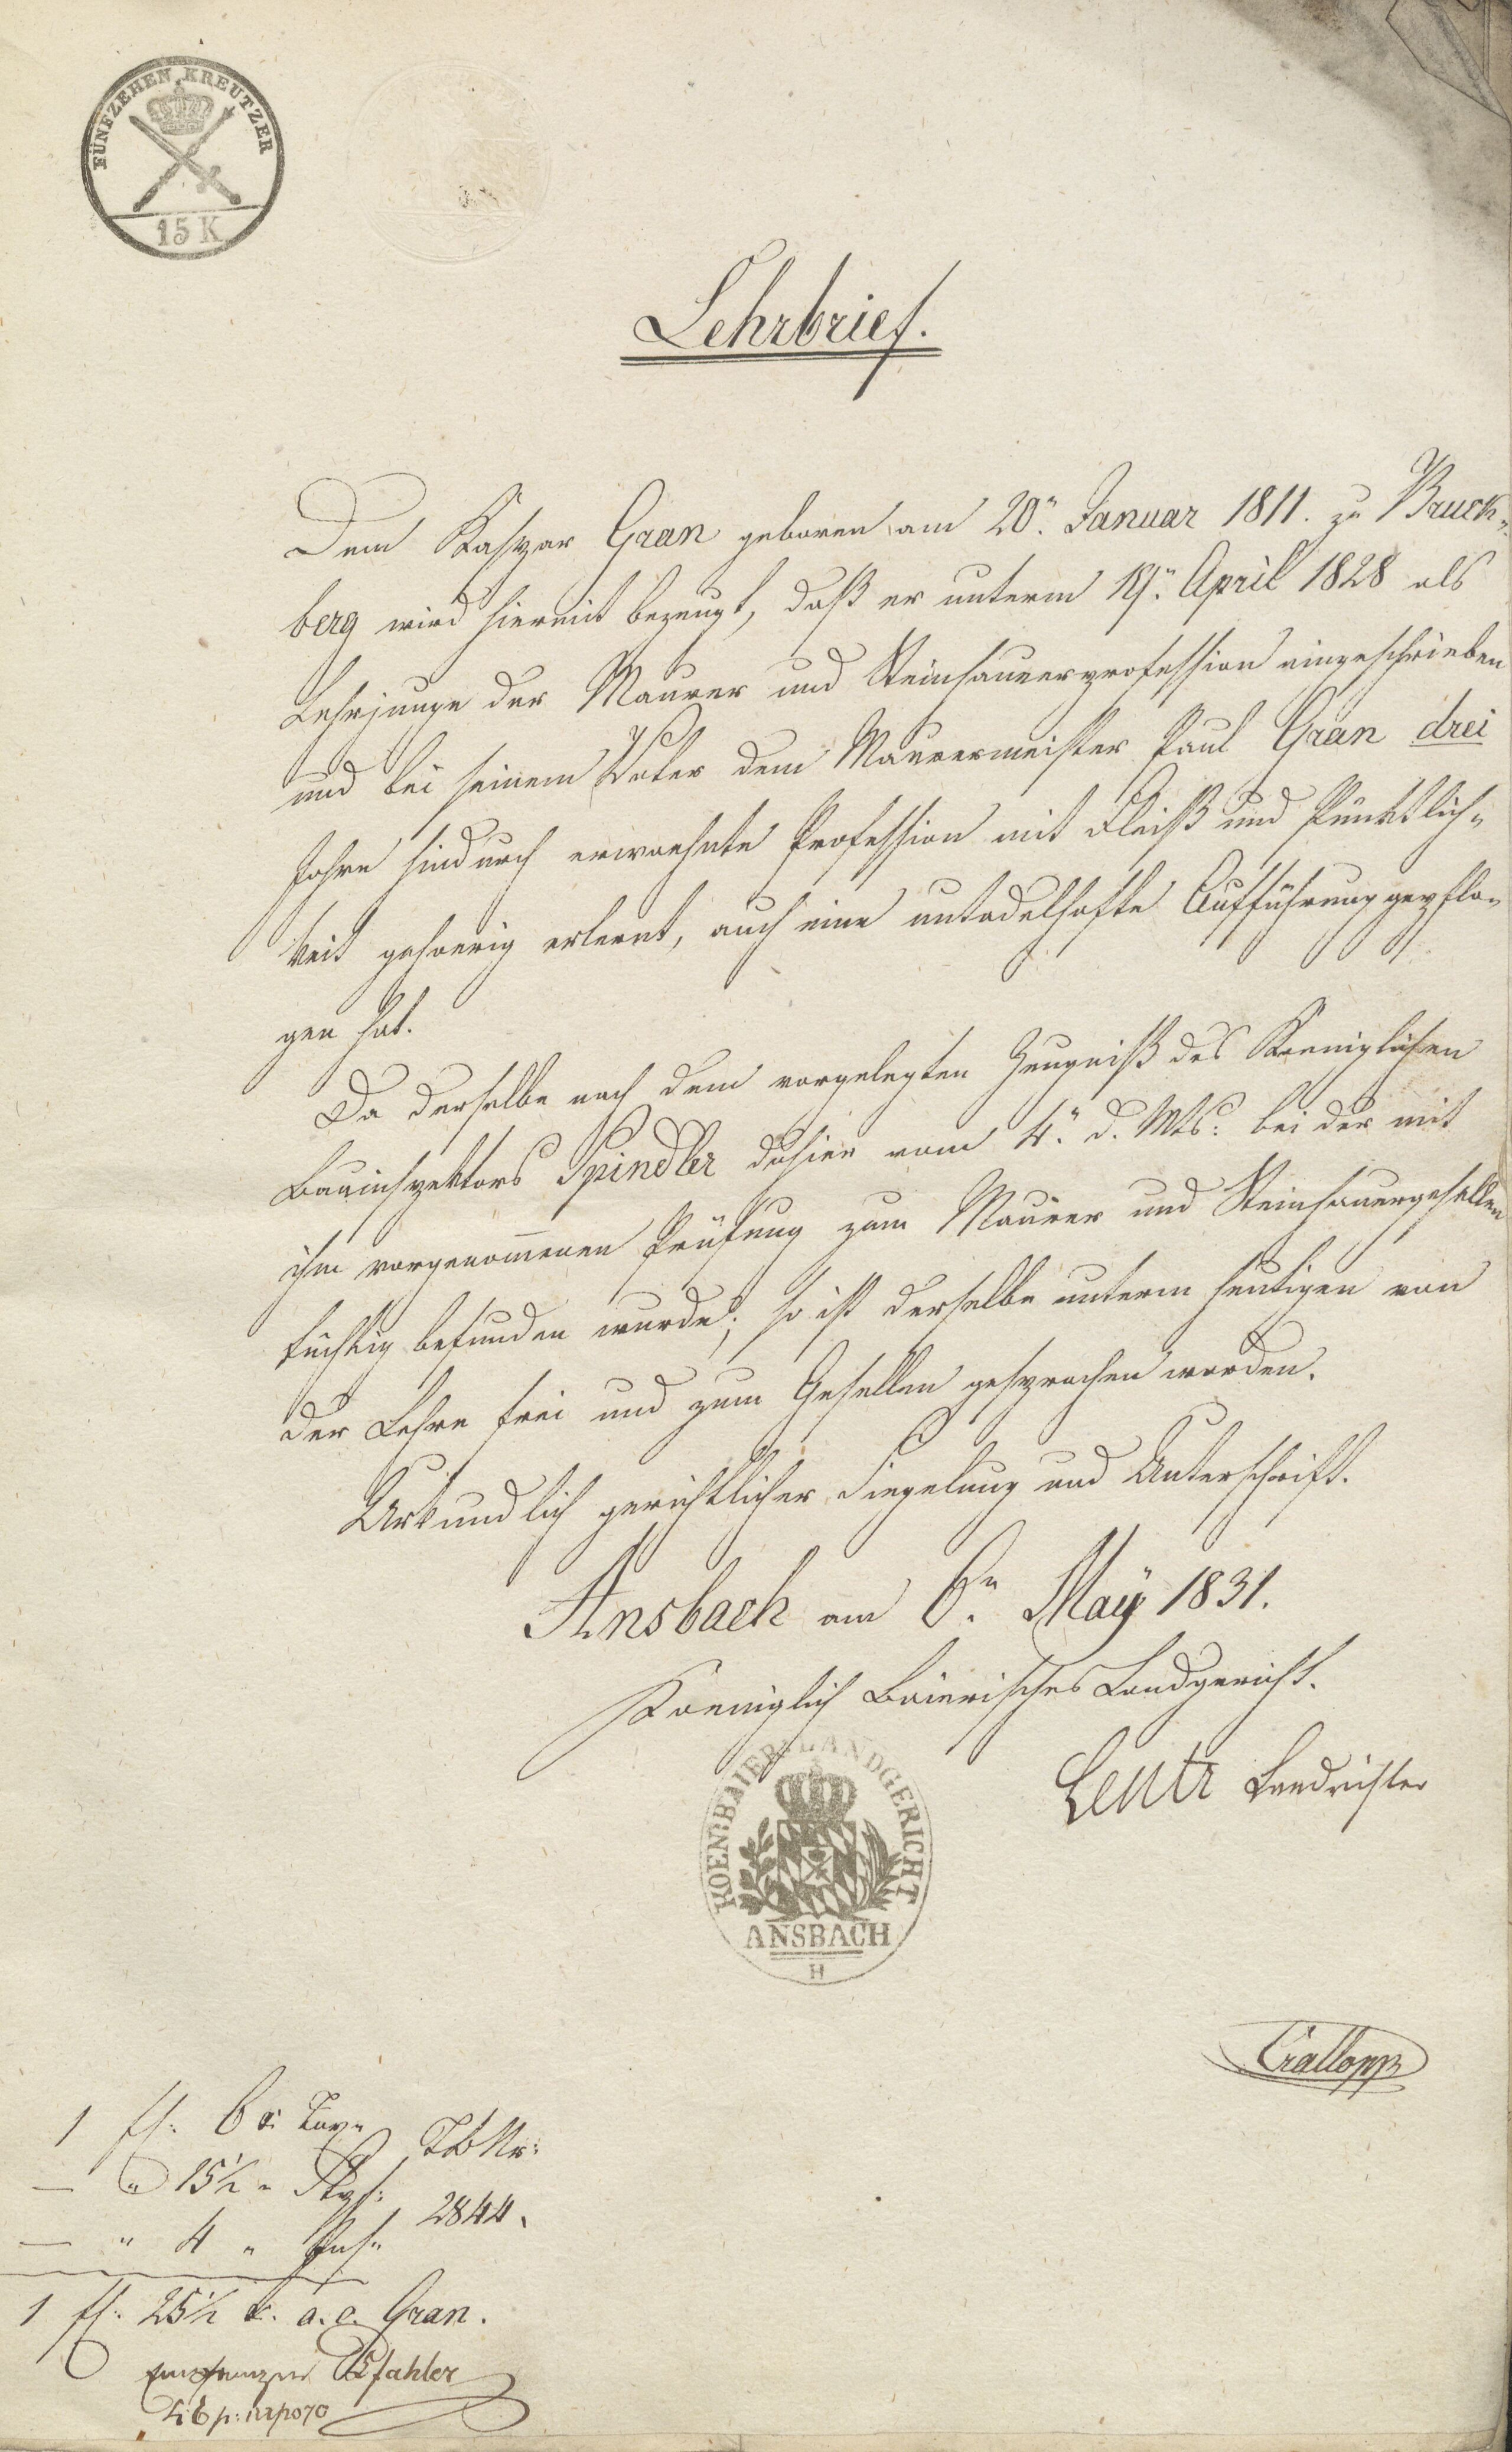 FÜNFZEHEN KREUTZER
15 K
Lehrbrief.
Dem Kaspar Gran geboren am 20n. Januar 1811. zu Bruck-
berg wird hiermit bezeugt, daß er unterm April 1828 als
Lehrjunge der Maurer und Steinhauerprofession eingeschrieben
und bei seinem Vater dem Maurermeister Paul Gran drei
Jahre hindurch erwaehnte Profession mit Fleiß und Pünktlich-
keit gehoerig erlernt, auch eine untadelhafte Aufführung gepflo-
gen hat.
Da derselbe nach dem vorgelegten Zeugniß des Koeniglichen
Bauinspektors Spindler dahier vom 4n. d. Mts. bei der mit
ihm vorgenom̄enen Prüfung zum Maurer und Steinhauergesellen
tüchtig befunden wurde; so ist derselbe unterm heutigen von
der Lehre frei und zum Gesellen gesprochen worden.
Urkundlich gerichtlicher Siegelung und Unterschrift.
Ansbach am 6n. Maÿ 1831.
Koeniglich Baierisches Landgericht.
Landrichter
KOEN: BAIER: LANDGERICHT
ANSBACH
H
1 fl. 6 x. Tax. TbNr:
— " 15½ " Stpl: 2844.
— " 4 "
1 fl. 25½ x. a. c. Gran.
Pfahler